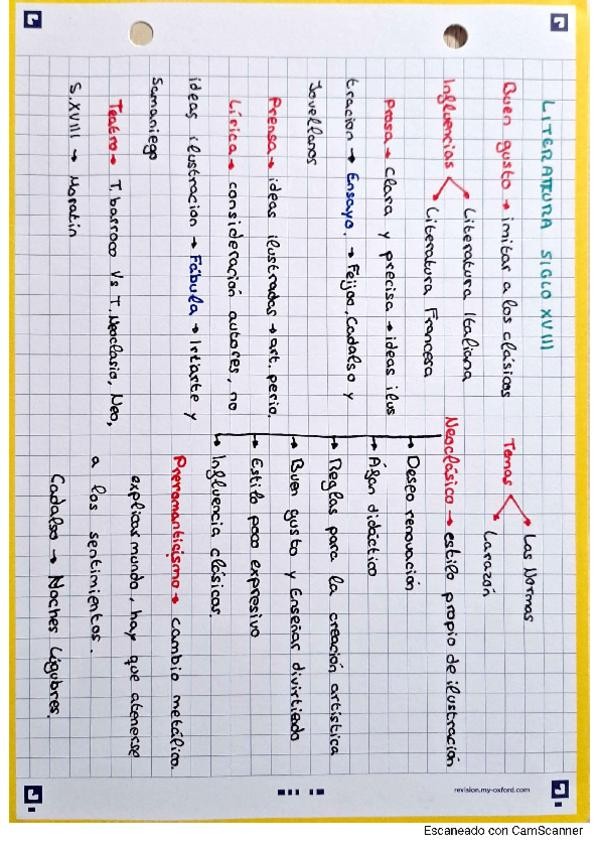 LITERATURA SIGLO XVIII
Buen gusto → imitar a los clásicos
Influencias → Literatura Italiana
→ Literatura Francesa
Prosa → Clara y precisa → ideas ilus
tracion → Ensayo. → Feijoo, Cadalso y
Jovellanos
Prensa → ideas ilustradas → art. perio.
Lírica → consideración autores, no
ideas ilustracion → Fábula → Iriarte y
Samaniego
Teatro → T. barroco Vs T. Neoclasio, Neo,
S.XVIII → Moratín
Temas → Las Normas
→ Larazón
Neoclásico → estilo propio de ilustración
→ Deseo renovación
→ Áfan didáctico
→ Reglas para la creación artística
→ Buen gusto y Enseñar divirtiedo
→ Estilo poco expresivo
→ Influencia clásicos.
Prerromanticismo → cambio metálico.
explicas mundo, hay que atenerse
a los sentimientos.
Cadalso → Noches Lúgubres.
revision.my-oxford.com
Escaneado con CamScanner